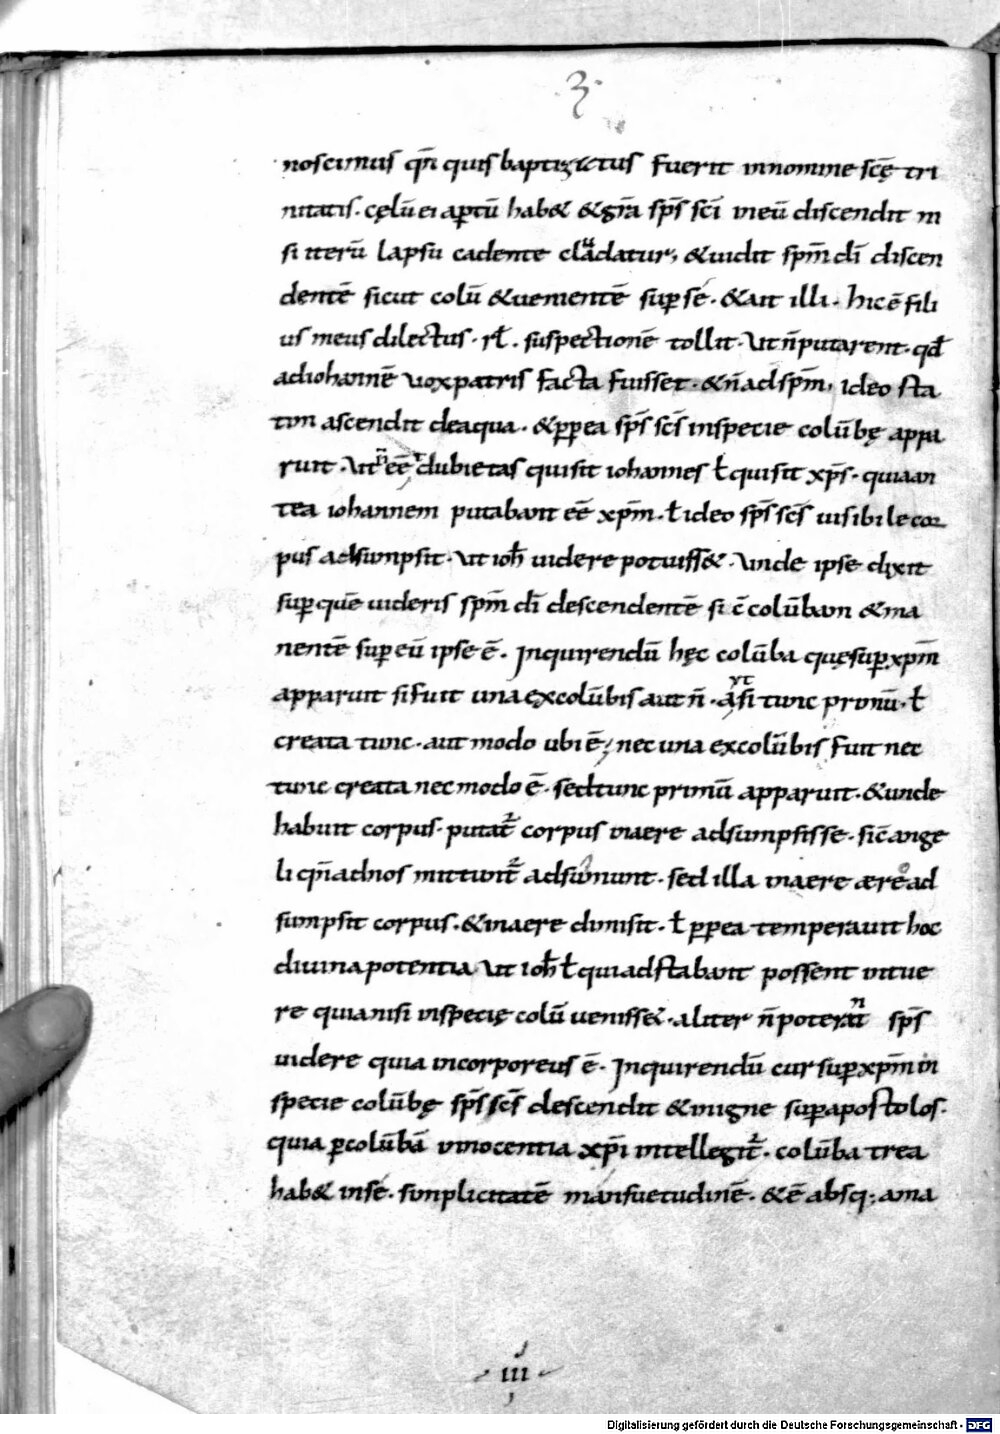 3
noscimus qn̄ quis baptizatus fuerit in nomine scę̄ tri
nitatis. cę̨lū ei aꝑtū hab& & gr̄a sp̄s sc̄i in eū discendit ni
si iterū lapsū cadente claudatur, & uidit sp̄m dī discen
dentē sicut colū & uenientē sup se. & ait illi. hic ē fili
us meus dilectus. rł. suspectionē tollit. Ut n̄ putarent. qd̄
ad iohannē uox patris facta fuisset. & n̄ ad sp̄m, ideo sta
tim ascendit de aqua. & ꝓpea sp̄s sc̄s in specie colūbę appa
ruit. Ut n̄ eē dubietas quis sit iohannes ł quis sit xp̄s. quia an
tea iohannem putabant eē xp̄m. ł ideo sp̄s sc̄s uisibile cor
pus adsumpsit. Ut ioh̄ uidere potuiss&. Unde ipse dixit
sup quē uideris sp̄m dī descendentē sic̄ colūbam & ma
nentē sup eū ipse ē. Inquirendū hęc colūba quę sup xp̄m
apparuit si fuit una ex colūbis aut n̄. a si tunc primū. ł
creata tunc. aut modo ubi ē; nec una ex colūbis fuit nec
tunc creata nec modo ē. sed tunc primū apparuit. & unde
habuit corpus. putat̄ corpus in aere adsumpsisse. sic̄ ange
li qn̄ ad nos mittunt̄ adsumunt. sed illa in aere aere ad
sumpsit corpus. & in aere dimisit. ł ꝓpea temperauit hoc
diuina potentia Ut ioh̄ ł qui adstabant possent intue
re quia nisi in specię colū uenisse&. aliter n̄ poterant sp̄s
uidere quia incorporeus ē. Inquirendū cur sup xp̄m in
specie colūbę sp̄s sc̄s descendit & in igne sup apostolos.
quia ꝑ colūbā innocentia xp̄i intellegit̄. colūba trea
hab& in se. simplicitatē mansuetudinē. & ē absq; ama
III
Digitalisierung gefördert durch die Deutsche Forschungsgemeinschaft - DFG